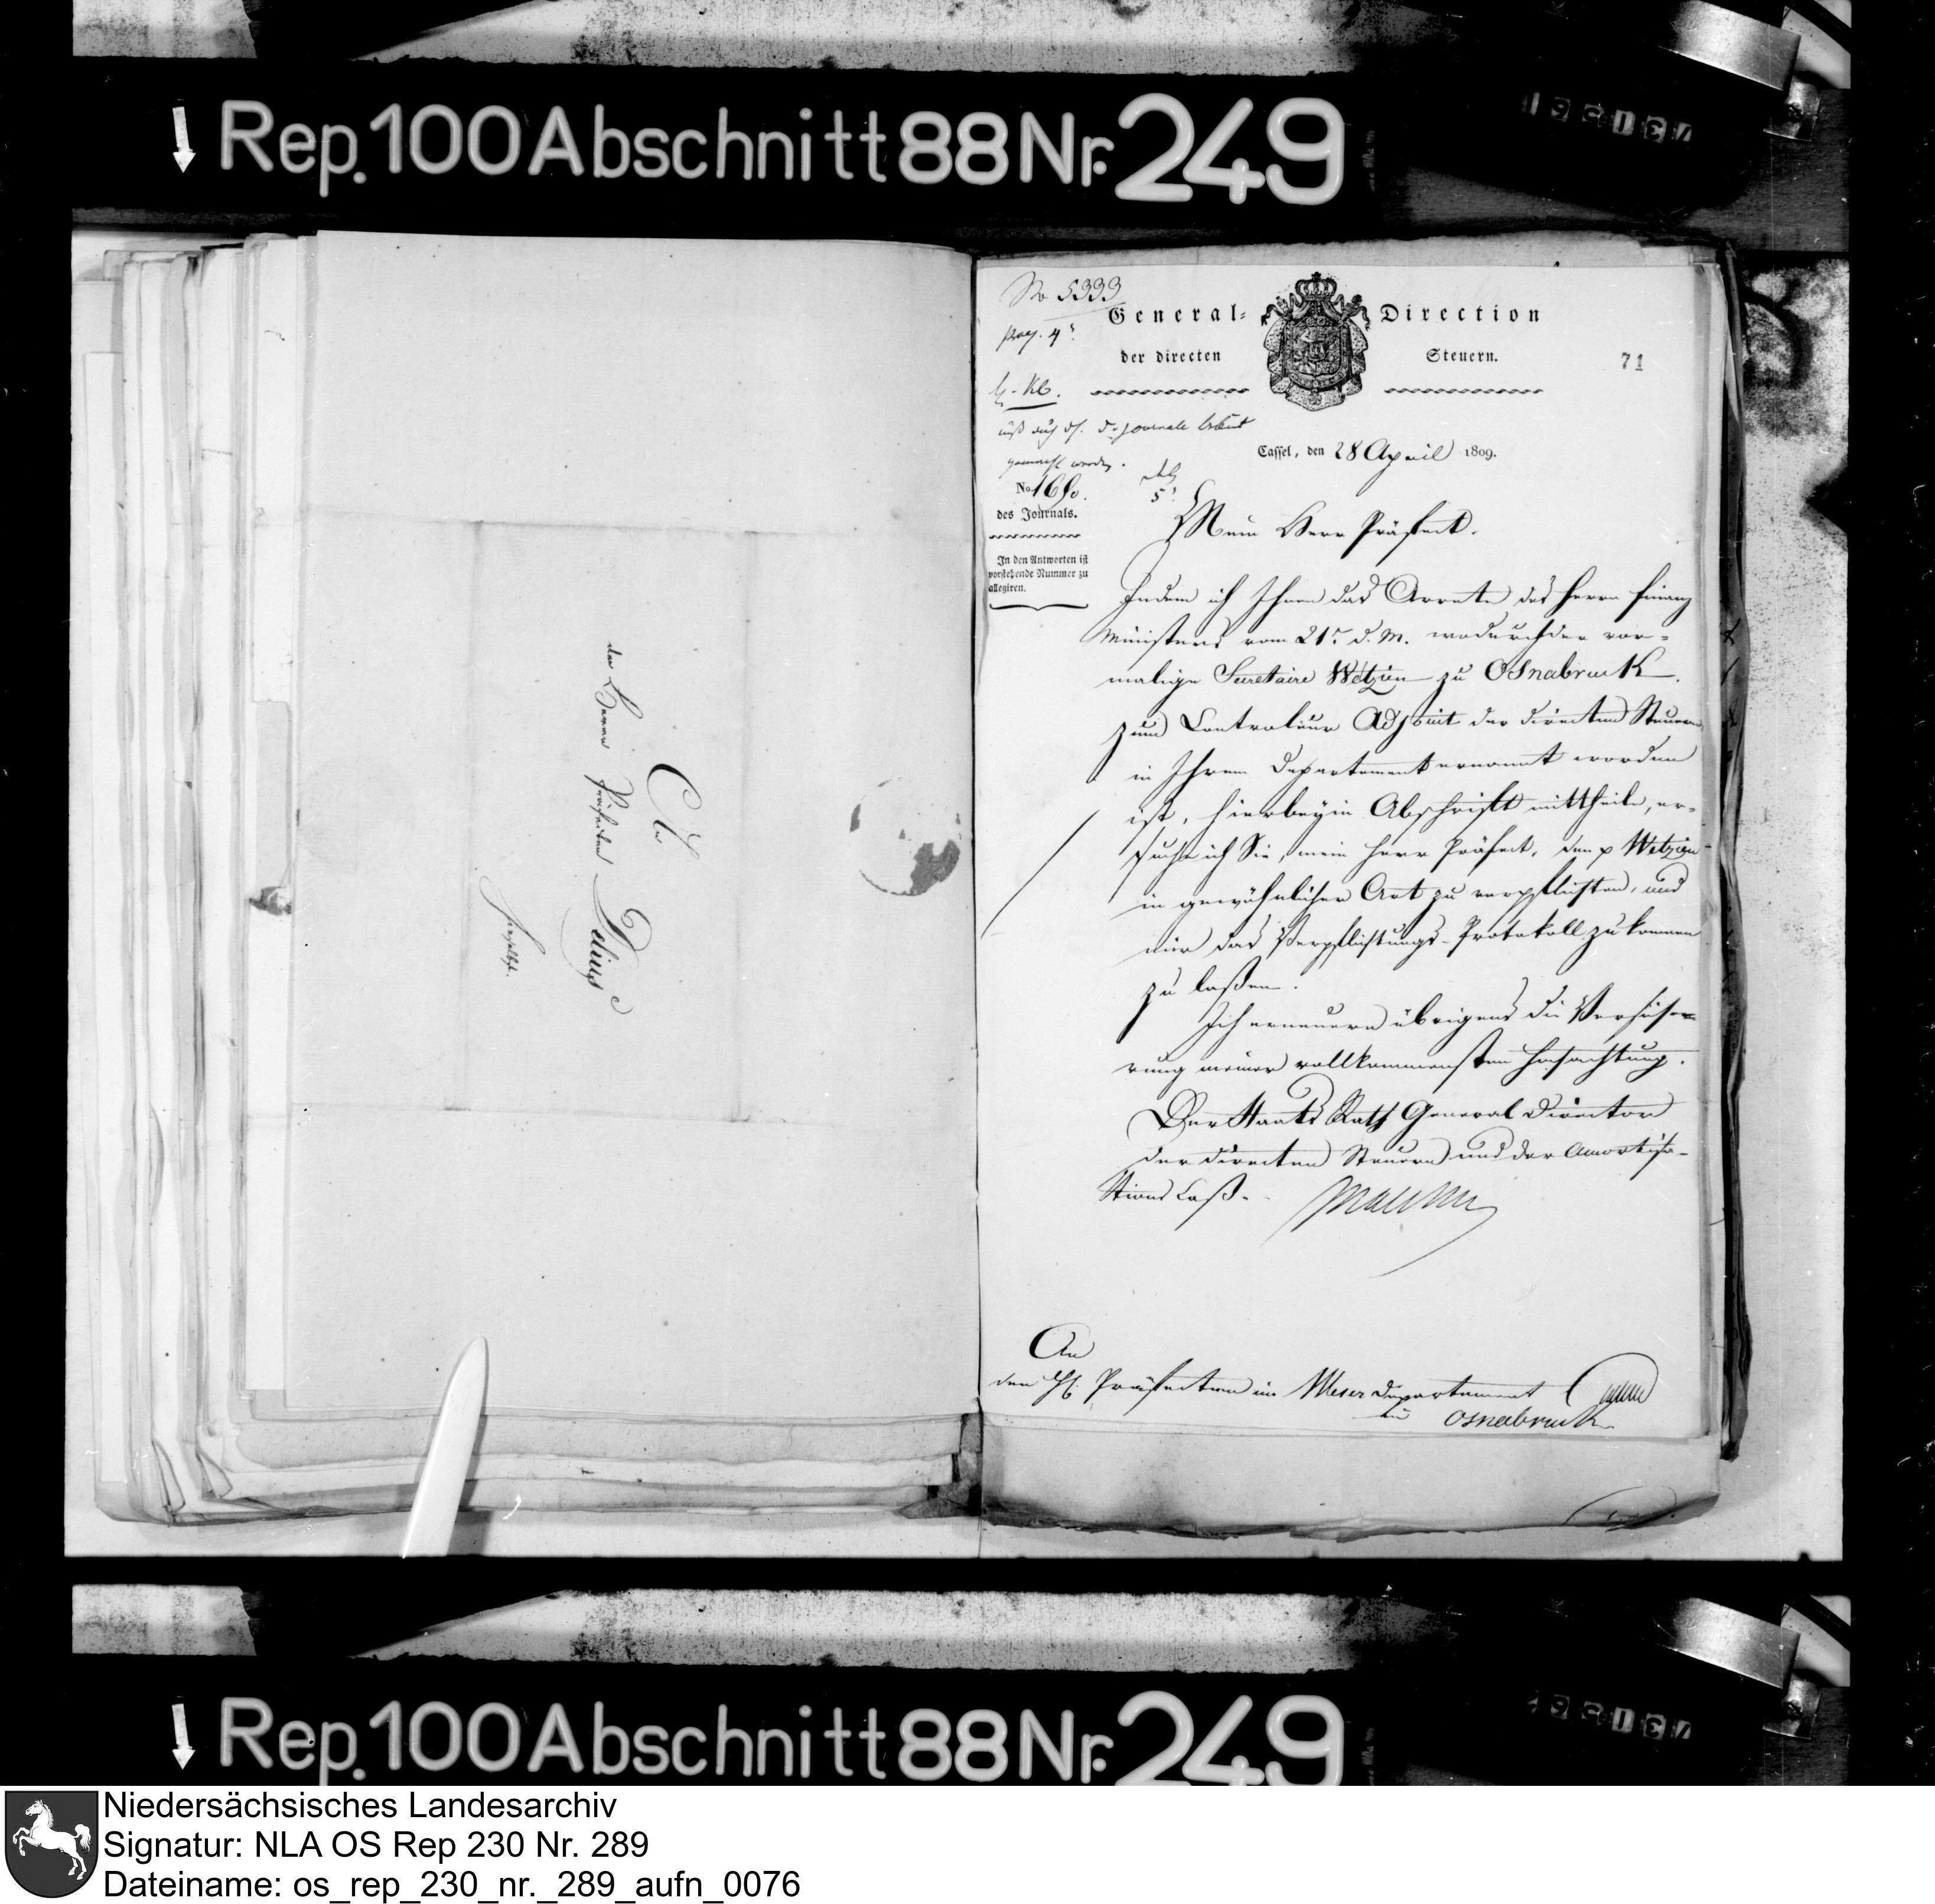 Rep. 100 Abschnitt 88 Nr. 249
An
den Herrn Präfecten Delius
hieselbst.
No 5333
General-Direction
der directen Steuern.
71
muß auf d. Journale bekannt
gemacht werden.
Cassel, den 28 April 1809.
No.
des Journals.
In den Antworten ist
vorstehende Nummer zu
allegiren.
Mein Herr Präfect.
Indem ich Ihnen das Arrete des Herrn Finanz
Ministers vom 21t. d. M. wodurch der vor-
malige Secretaire Wetzien zu Osnabruck
zum Controleur Adjoint der directen Steuern
in Ihrem Departement ernannt worden
ist, hierbey in Abschrift mittheile, er-
suche ich Sie, mein Herr Präfect, den p Wetzien
in gewöhnlicher Art zu verpflichten, und
mir das Verpflichtungs-Protokoll zukommen
zu laßen.
Ich erneuere übrigens die Versiche-
rung meiner vollkommensten Hochachtung.
Der Staats Rath General Director
der directen Steuern und der Amortisa-
tions Casse.
Malchus
An
den H. Präfecten im Weser Departement
zu Osnabruck
Rep. 100 Abschnitt 88 Nr. 249
Niedersächsisches Landesarchiv
Signatur: NLA OS Rep 230 Nr. 289
Dateiname: os_rep_230_nr._289_aufn_0076